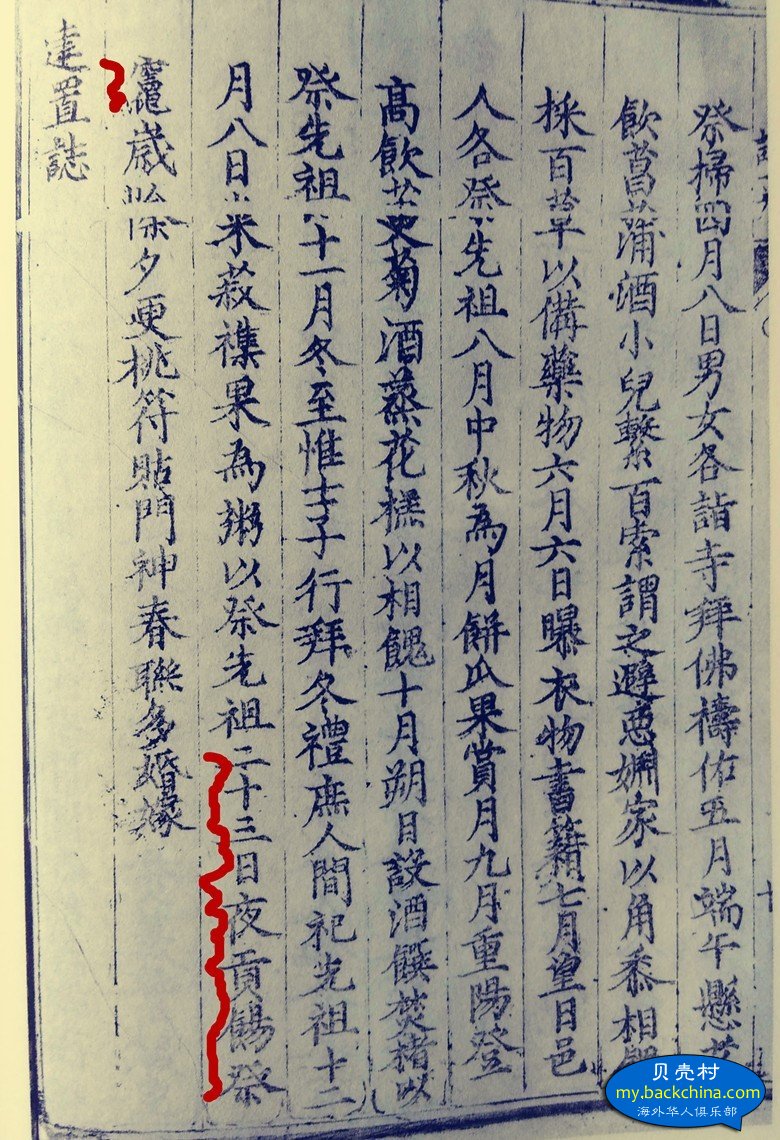 祭掃四月八日男女各詣寺拜佛禱佑五月端午懸艾
飲菖蒲酒小兒繫百索謂之避惡姻家以角黍相餽
採百草以備藥物六月六日曝衣物書籍七月望日邑
人各祭先祖八月中秋為月餅瓜果賞月九月重陽登
高飲茱萸菊酒蒸花糕以相餽十月朔日設酒饌焚楮以
祭先祖十一月冬至惟士子行拜冬禮庶人間祀先祖十二
月八日米菽襍果為粥以祭先祖二十三日夜貢餳祭
竈歲除夕更桃符貼門神春聯多婚嫁
建置誌
贝壳村
my.backchina.com
海外华人俱乐部